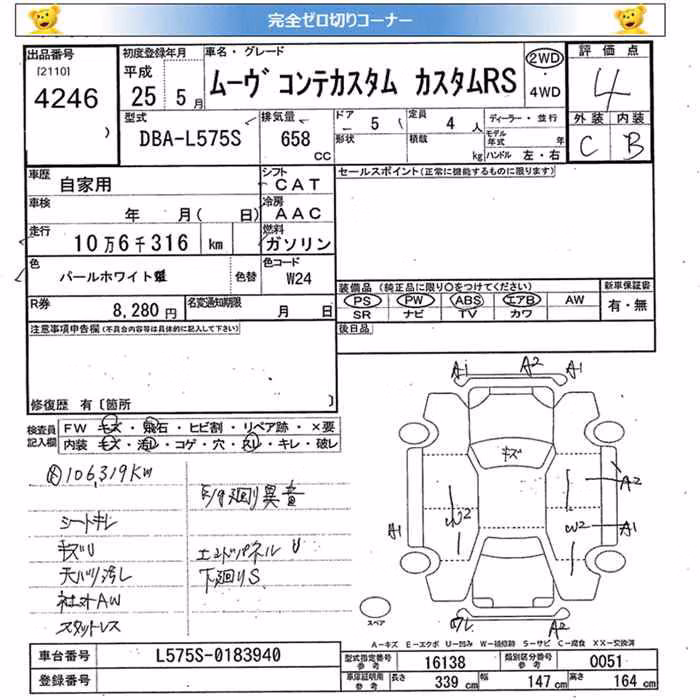 完全ゼロ切りコーナー
出品番号
[2110]
4246
初度登録年月
平成
25 5月
車名・グレード
ムーヴ コンテカスタム カスタムRS
2WD
・
4WD
評価点
4
外装 内装
C B
型式
DBA-L575S
排気量
658
cc
ドア 5
形状
定員 4 人
積載 kg
ディーラー・並行
モデル年式 年
ハンドル 左・右
車歴
自家用
シフト
CAT
車検
年 月( 日)
冷房
AAC
走行
10万6千316 km
燃料
ガソリン
色
パールホワイト
色替
色コード
W24
R券
8,280円
名変通知期限
月 日
セールスポイント(正常に機能するものに限ります)
装備品(純正品に限り〇をつけてください)
PS PW ABS エアB AW
SR ナビ TV カワ
新車保証書
有・無
後日品
注意事項申告欄(不具合内容等は具体的に記入して下さい)
修復歴 有〔箇所 〕
検査員記入欄
FW キズ・飛石・ヒビ割・リペア跡・×要
内装 キズ・汚レ・コゲ・穴・スレ・キレ・破レ
106,319KM
シートキレ
キズU
天バリ汚レ
社外AW
スタットレス
F/g廻り異音
エンドパネルU
下廻りS
A1 A2 A1
キズ
A2
W2 W2
A1 A1
A2
スペア
A-キズ E-エクボ U-凹み W-補修跡 S-サビ C-腐食 XX-交換済
車台番号
L575S-0183940
登録番号
型式指定番号
参考
16138
類別区分番号
参考
0051
車庫証明用
参考
長さ 339 cm
幅 147 cm
高さ 164 cm